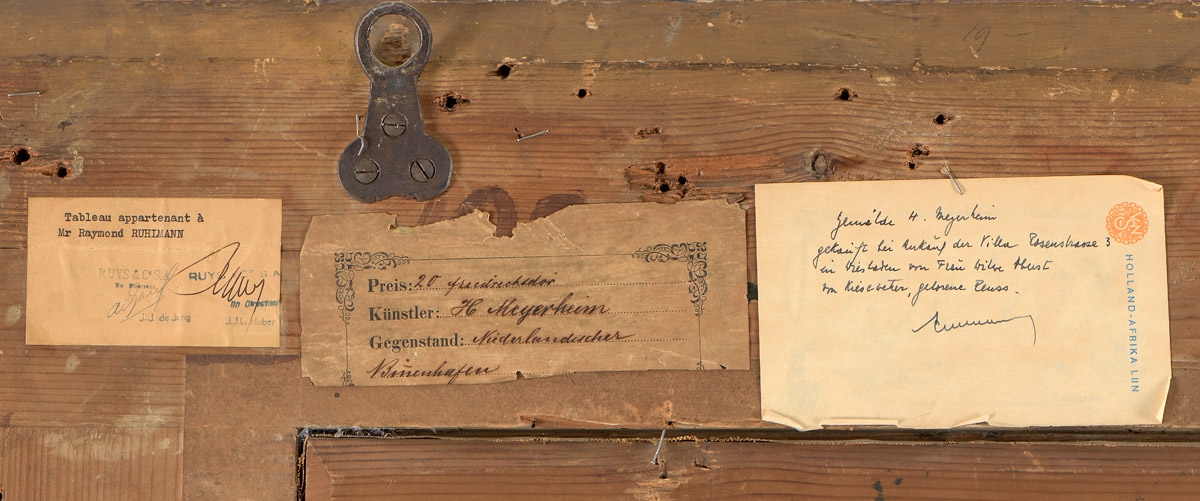 19
Tableau appartenant à
Mr Raymond RUHLMANN
RUYS & Co S.A.
RUYS
S.A.
J.J. de Jong
J.J.L. Huber
Preis: 20 friedrichsdor
Künstler: H Meyerheim
Gegenstand: Niederlandischer
Binnenhafen
Gemälde H. Meyerheim
gekauft bei Ankauf der Villa Rosenstrasse 3
in Wiesbaden von Frau Witwe Oberst
von Kiesewetter, geborene Reuss.
HOLLAND-AFRIKA LIJN